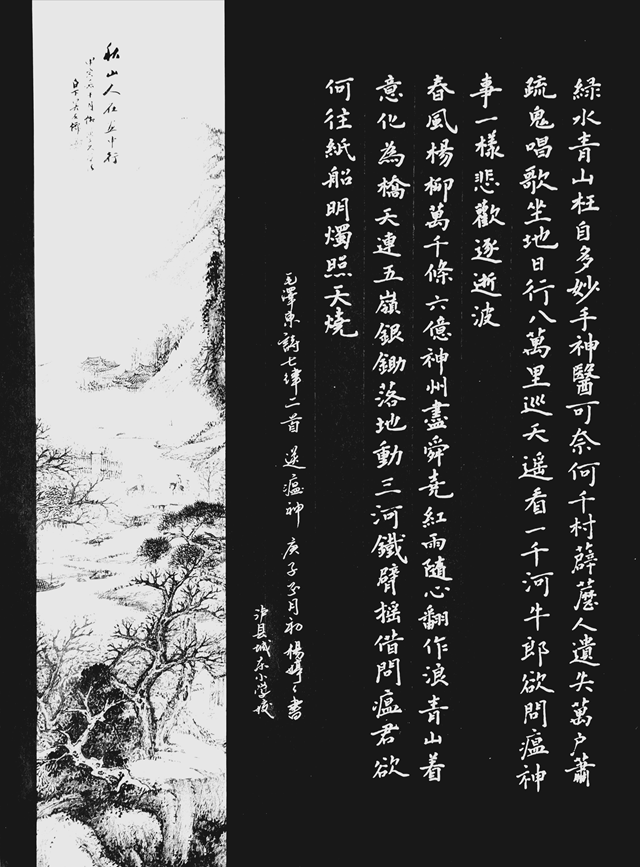 綠水青山枉自多妙手神醫可奈何千村薜人遺失萬户蕭
疏鬼唱歌坐地日行八萬里巡天遥看一千河牛郎欲問瘟神
事一樣悲歡逐逝波
春風楊柳萬千條六億神州盡舜堯紅雨隨心翻作浪青山着
意化為橋天連五嶺銀鋤落地動三河鐵臂摇借問瘟君欲
何往紙船明燭照天燒
毛澤東詩七律二首 送瘟神 庚子月初楊書
县城东小学校
秋山人在中行